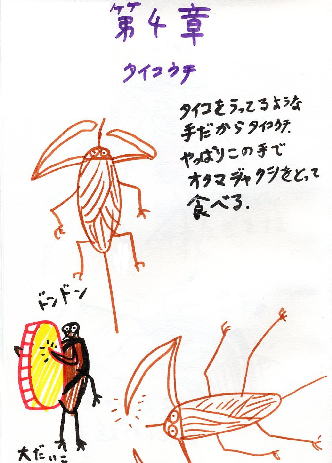 第4章
タイコウチ
タイコをうってるような
手だからタイコウチ.
やっぱりこの手で
オタマジャクシをとって
食べる.
ドンドン
大だいこ